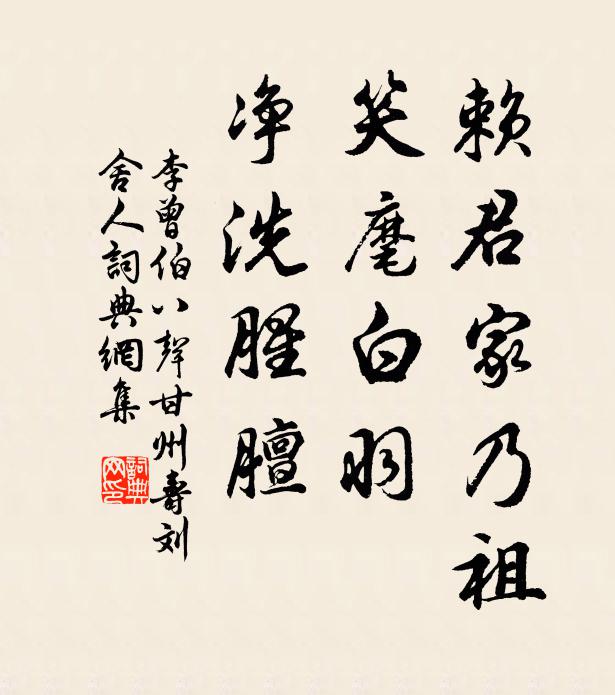 赖君家乃祖
笑麾白羽
净洗腥膻
李曾伯八聲甘州壽刘
舍人詞典網集
詞典網印